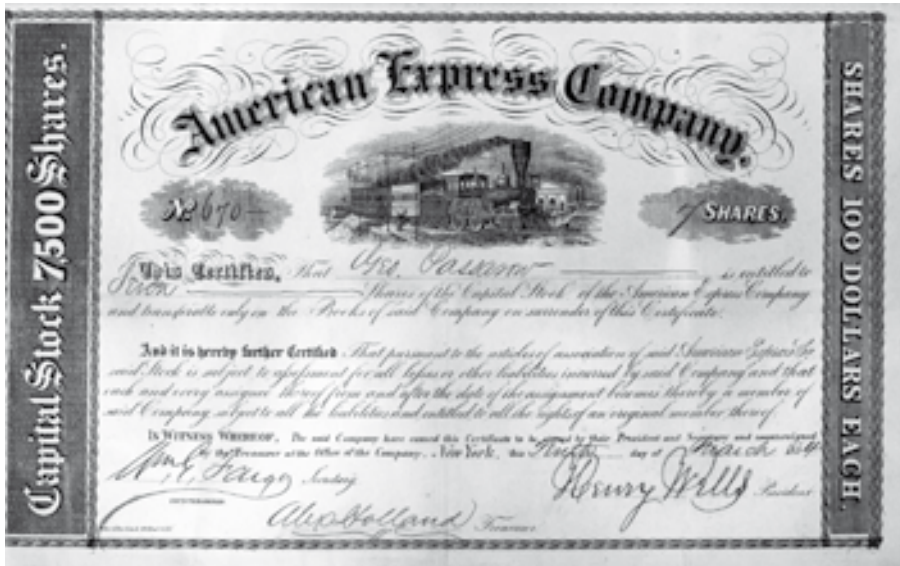 American Express Company.
Capital Stock 7500 Shares.
SHARES 100 DOLLARS EACH.
No 670
7 SHARES.
This Certifies, That Geo. is entitled to
Shares of the Capital Stock of the American Express Company
and transferable only on the Books of said Company on surrender of this Certificate.
And it is hereby further Certified That pursuant to the articles of association of said American Express Co
said Stock is subject to assessment for all losses or other liabilities incurred by said Company and that
each and every assignee thereof from and after the date of the assignment becomes thereby a member of
said Company subject to all the liabilities and entitled to all the rights of an original member thereof.
IN WITNESS WHEREOF, The said Company have caused this Certificate to be signed by their President and Secretary and
by the Treasurer at the Office of the Company, New York, this day of March
Wm. G. Fargo Secretary
Henry Wells President
Alex Holland Treasurer